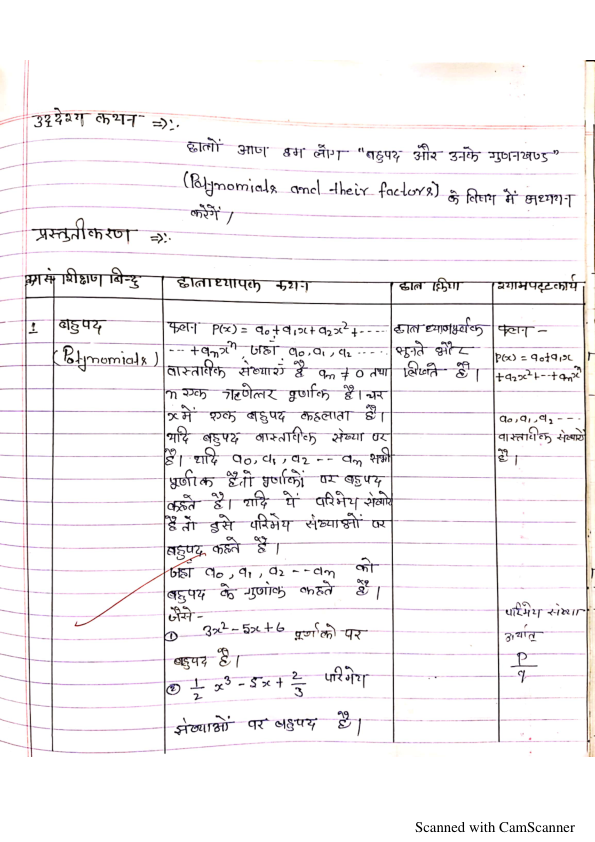 उद्देश्य कथन ⇒:-
छात्रों आज हम लोग "बहुपद और उनके गुणनखण्ड"
(Polynomials and their factors) के विषय में अध्ययन
करेगें /
प्रस्तुतीकरण ⇒:-
क्र०सं० शिक्षण बिन्दु छात्राध्यापक कथन छात्र क्रिया श्यामपट्टकार्य
1 बहुपद
(Polynomials)
फलन P(x) = a₀+a₁x+a₂x²+----
--+aₙxⁿ जहाँ a₀, a₁, a₂ ----
वास्तविक संख्याएं है aₙ ≠ 0 तथा
n एक ऋणेत्तर पूर्णांक है। चर
x में एक बहुपद कहलाता है।
यदि बहुपद वास्तविक संख्या पर
है। यदि a₀, a₁, a₂ -- aₙ सभी
पूर्णांक है तो पूर्णांकों पर बहुपद
कहते है। यदि ये परिमेय संख्याएं
है तो इसे परिमेय संख्याओं पर
बहुपद कहते है।
जहाँ a₀, a₁, a₂ --aₙ को
बहुपद के गुणांक कहते है।
जैसे -
① 3x²-5x+6 पूर्णांको पर
बहुपद है।
② 1/2 x³ - 5x + 2/3 परिमेय
संख्याओं पर बहुपद है।
छात्र ध्यानपूर्वक
सुनते और
लिखते है।
फलन -
P(x) = a₀+a₁x
+a₂x²+--+aₙxⁿ
a₀, a₁, a₂ ---
वास्तविक संख्याएं
है।
परिमेय संख्या
अर्थात्
p/q
Scanned with CamScanner